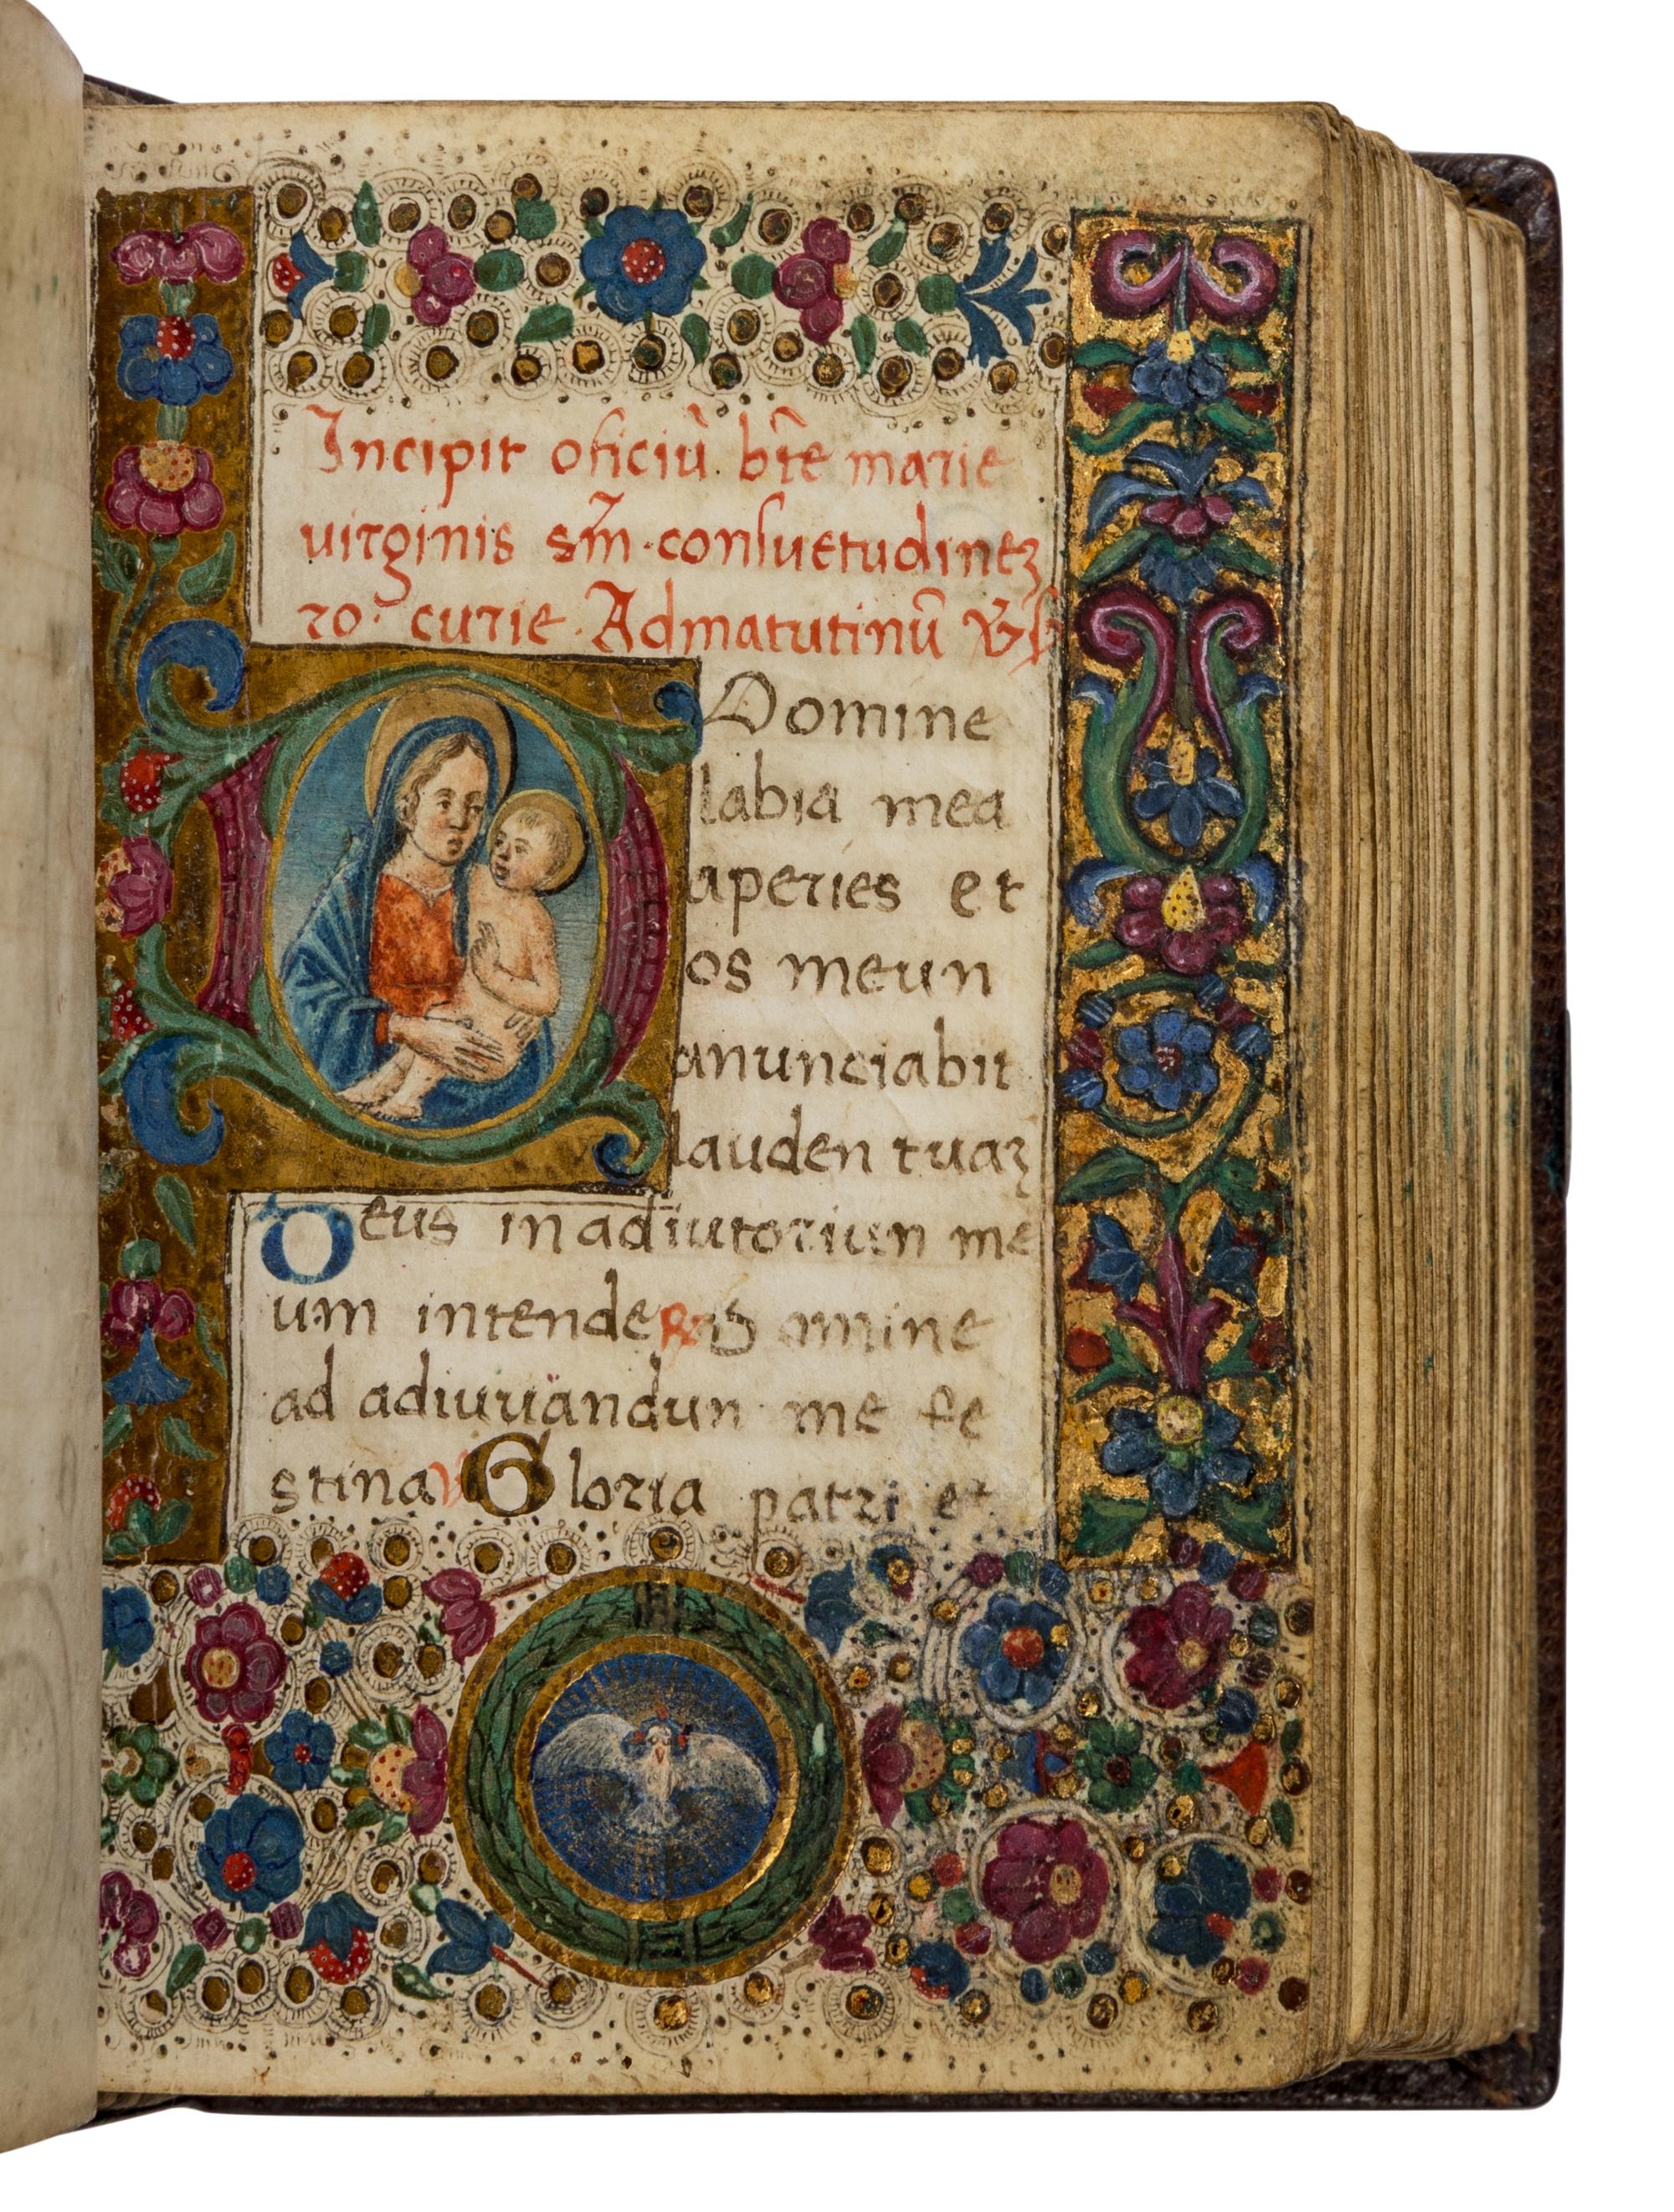 Incipit oficiũ. bt̃e marie
virginis sm̃ · consuetudinez
ro · curie · Admatutinũ
Domine
labia mea
aperies et
os meun
anunciabit
lauden tuaz
Deus in adiutoriun me
um intende ℟ Domine
ad adiuuandun me fe
stina ℣ Gloria patri et